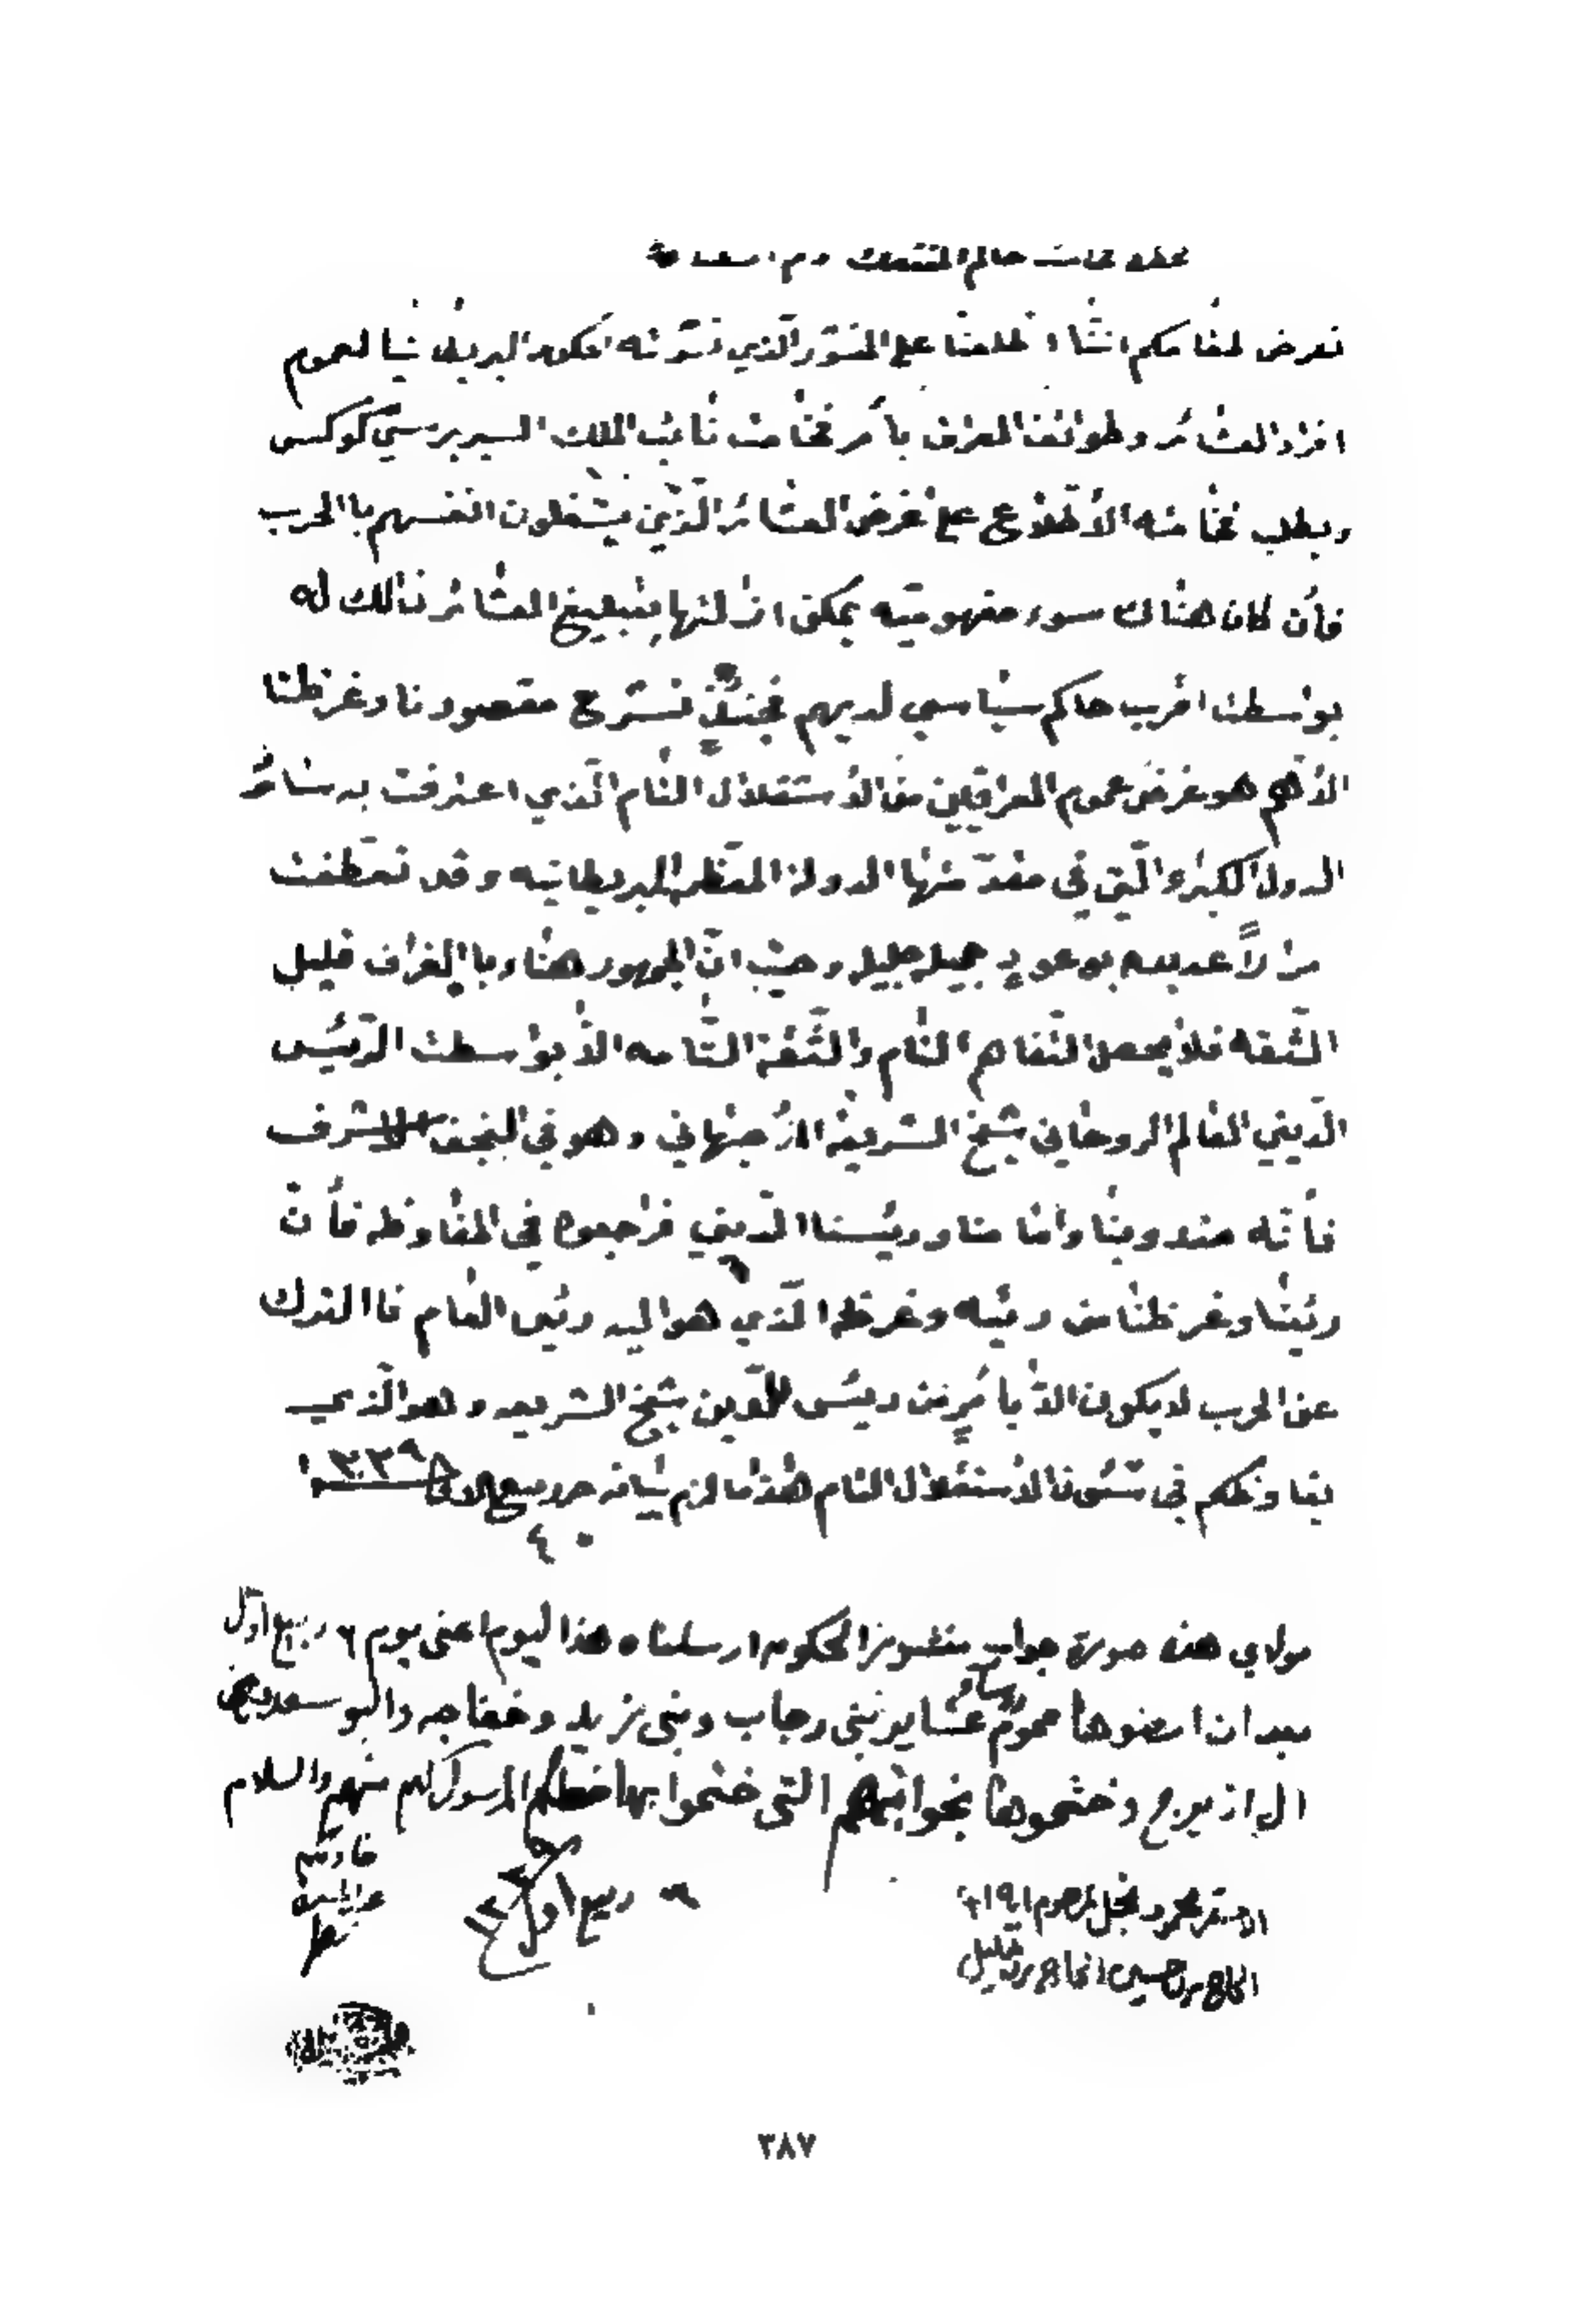 حاكم المنتفك
نعرض لمقامكم اننا اطلعنا على المنشور الذي نشرته الحكومه البريطانيا لعموم
افراد العشائر وطوائف العراق بأمر فخامت نائب الملك السير برسي كوكس
ويطلب فخامته الأطلاع على غرض العشائر الذين يشغلون انفسهم بالحرب
فأن كان هناك سوء مفهوميته يمكن ازالتها بتبليغ العشائر ذالك له
بواسطت اقرب حاكم سياسي لديهم نشرح مقصودنا وغرظنا
الأهم هو غرض عموم العراقيين من الأستقلال التام الذي اعترفت به سائر
الدول الكبرى التي في مقدمتها الدولة المعظمه البريطانيه وقد تعطفت
مراراً عديده بوعود جميله جليله وحيث ان الجمهور هنا وبالغراف قليل
الثقه فلا يحصل التفاهم التام والثقة التامه الا بواسطت الرئيس
الديني العالم الروحاني شيخ الشريعة الأصبهاني وهو في النجف الاشرف
فأنه مندوبنا وامامنا ورئيسنا الديني فراجعوه في المفاوظه فأن
رئينا وغرظنا من رئيه وغرظه الذي هو اليه رئيس العام فاالترك
عن الحرب لا يكون الا بأمر من رئيس الدين شيخ الشريعه وهو الذي
يفاوظكم في شئون الأستقلال التام هذا ما لزم بيانه حرر ربيع الاول ١٣٣٩
مولاي هذه صورة جواب منشور الحكومه ارسلناه هذا اليوم اعني يوم ٦ ربيع اول
بعد ان امضوها عموم رؤساء عشاير بني رجاب وبني زيد وخفاجه والبو سعد
ال ازيرج وختموها بخواتيمهم التي ختموا بها خطكم المرسول لهم منهم والسلام
٩ ربيع اول
خادم
٣٨٧